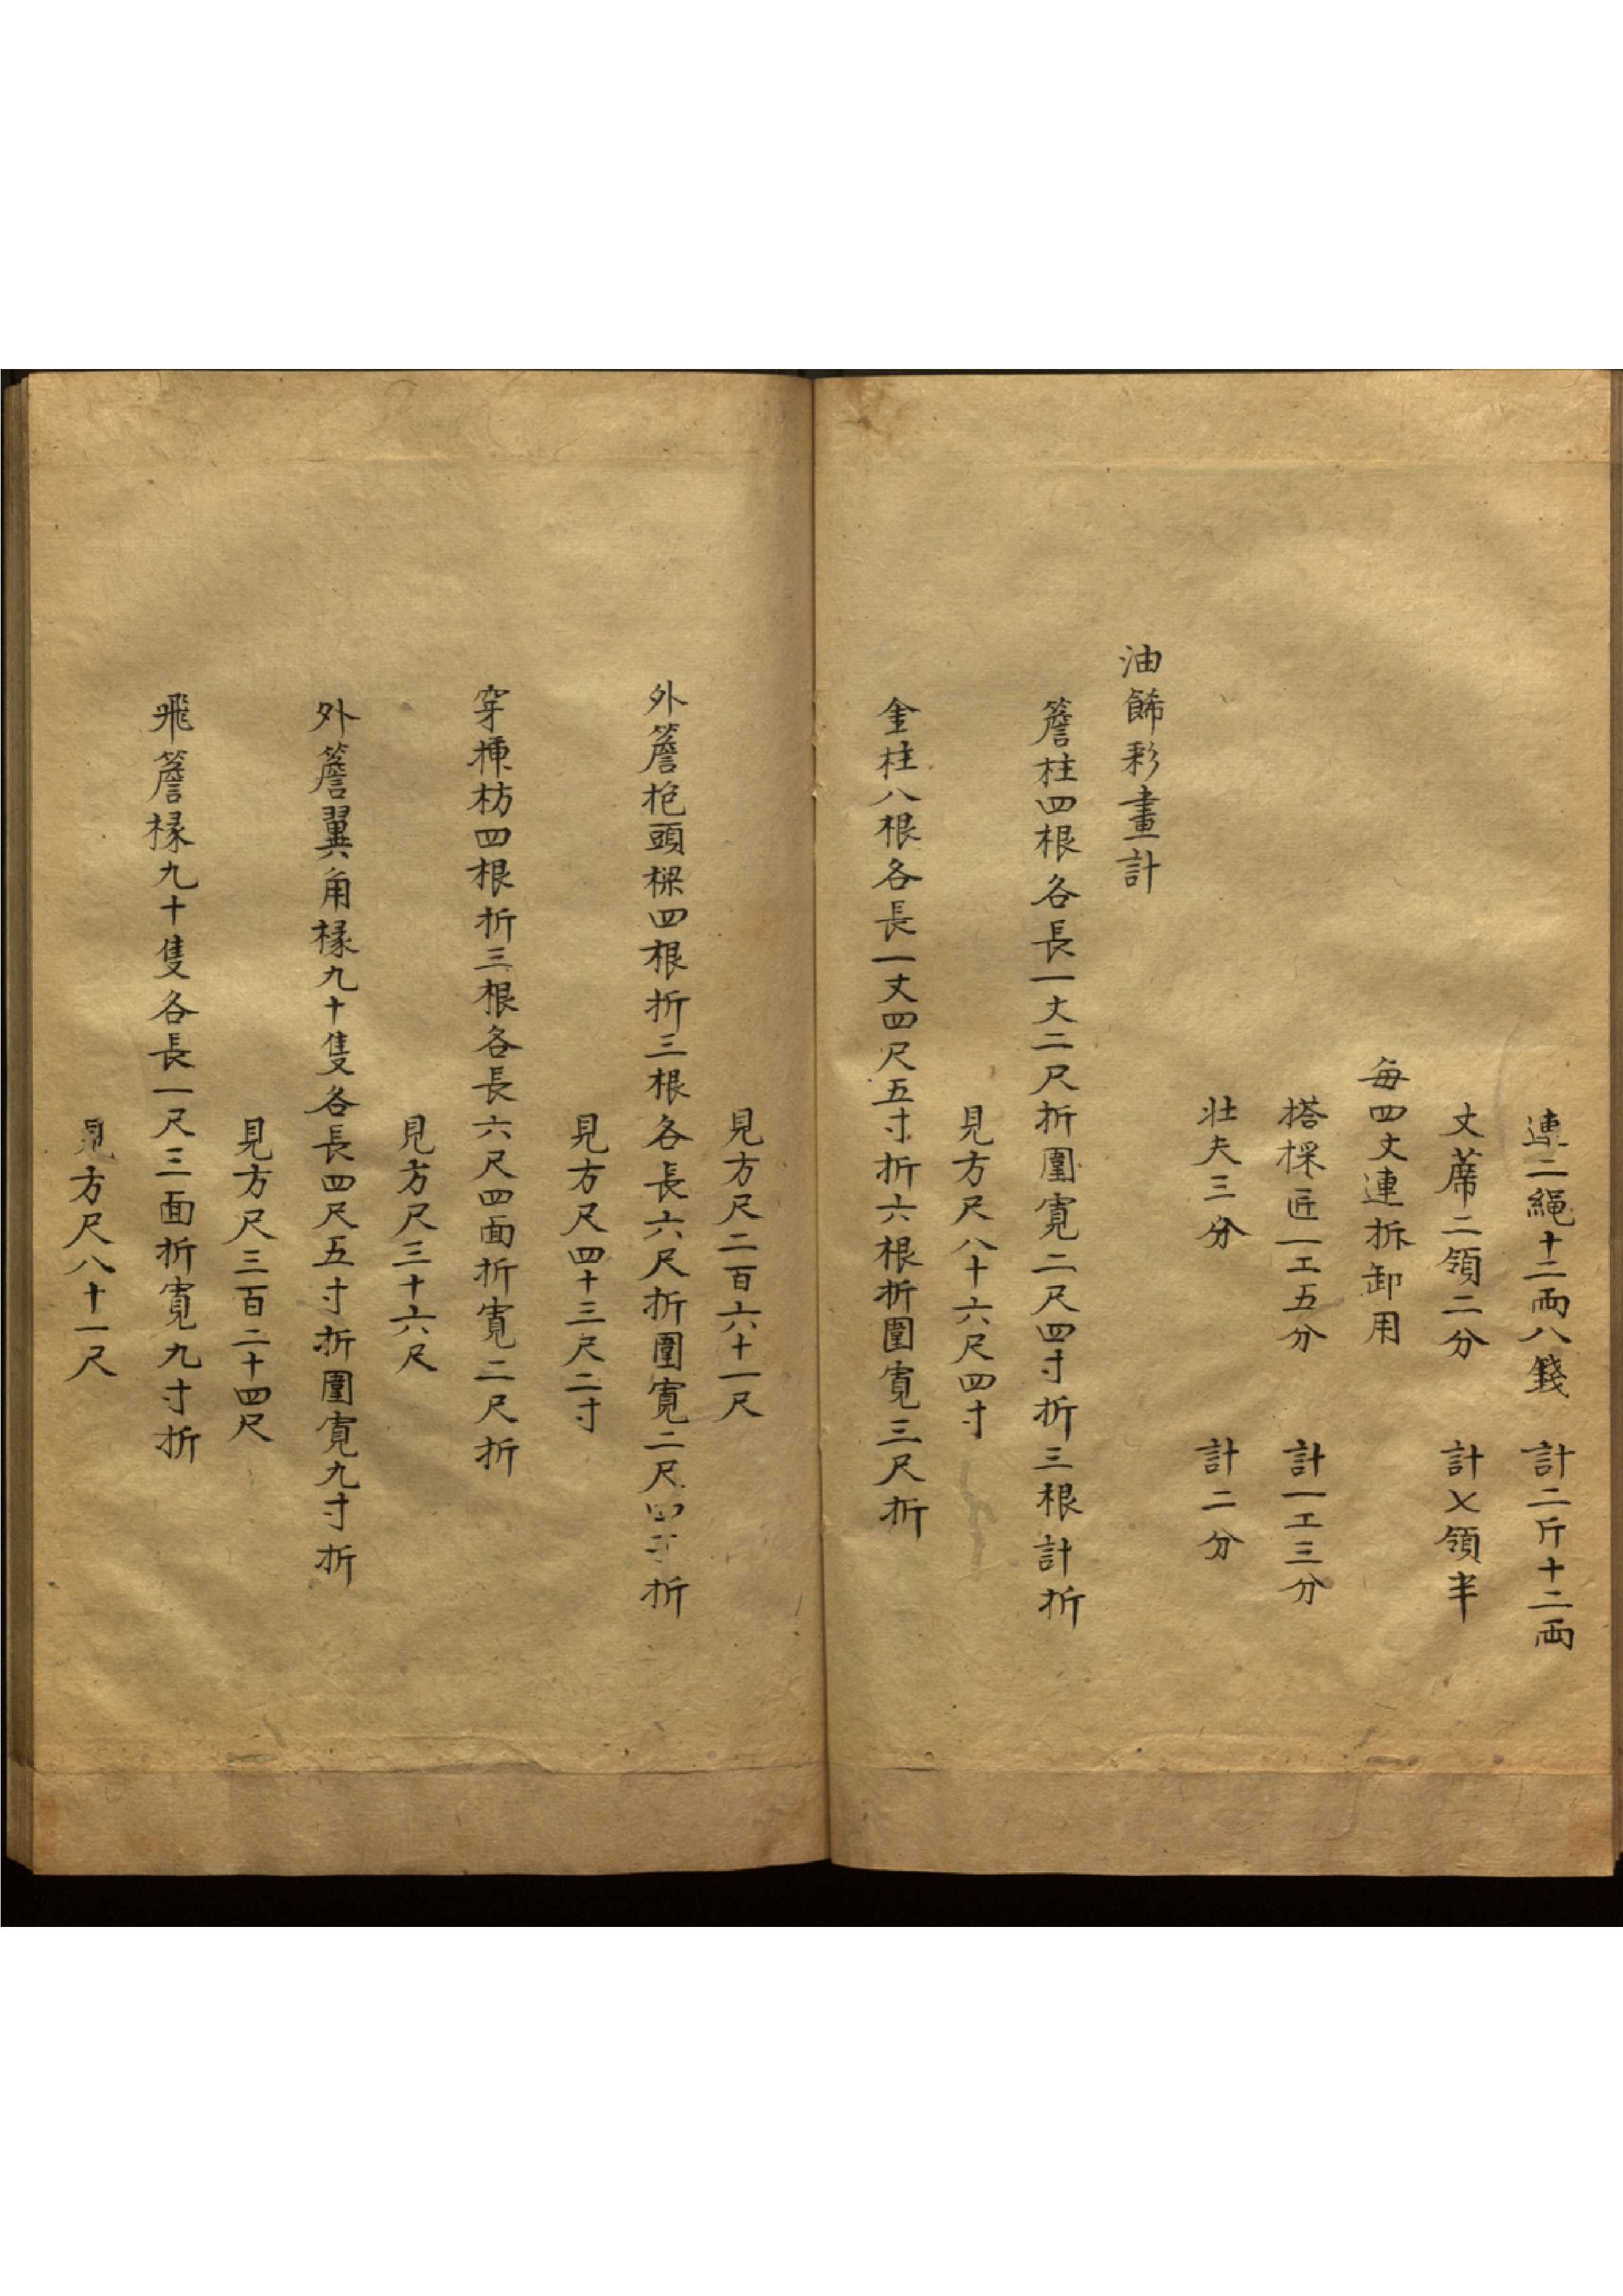 連二繩十二兩八錢 計二斤十二兩
丈蓆二領二分 計乂領半
每四丈連拆卸用
搭樑匠一工五分 計一工三分
壯夫三分 計二分
油飾彩畫計
簷柱四根各長一丈二尺折圍寬二尺四寸折三根計折
見方尺八十六尺四寸
金柱八根各長一丈四尺五寸折六根折圍寬三尺折
見方尺二百六十一尺
外簷抱頭樑四根折三根各長六尺折圍寬二尺四寸折
見方尺四十三尺二寸
穿插枋四根折三根各長六尺四面折寬二尺折
見方尺三十六尺
外簷翼角椽九十隻各長四尺五寸折圍寬九寸折
見方尺三百二十四尺
飛簷椽九十隻各長一尺三面折寬九寸折
見方尺八十一尺